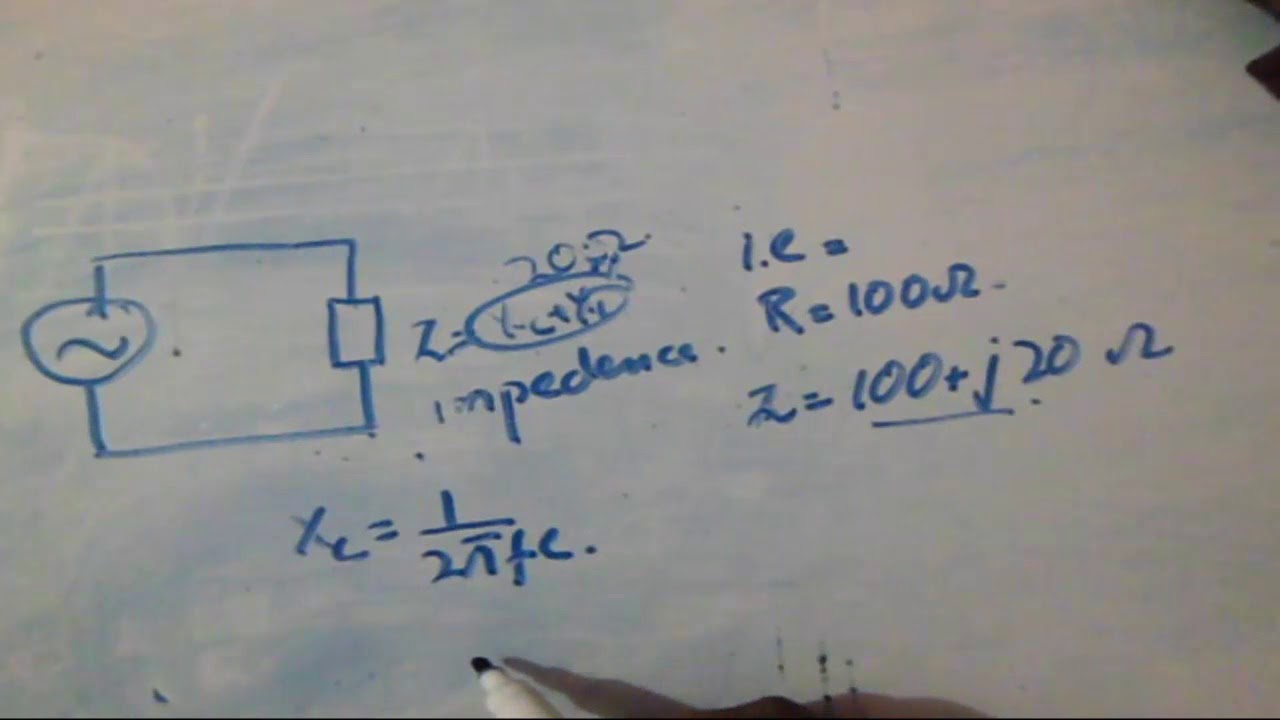 20Ω
Z = X_L + X_C
impedence.
I.e =
R = 100Ω.
Z = 100 + j20 Ω
X_c = 1/2πfc.